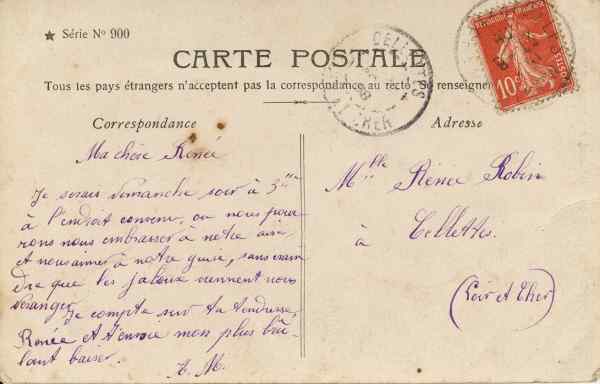 ★ Série N° 900
CARTE POSTALE
Tous les pays étrangers n'acceptent pas la correspondance au recto. Se renseigner
Correspondance
Ma chère Renée
Je serais dimanche soir à
à l'endroit convenu, ou nous pour
rons nous embrasser à notre aise
et nous aimer à notre guise, sans crain
dre que les jaloux viennent nous
déranger.
Je compte sur ta tendresse,
Renée et t'envoie mon plus brû-
lant baiser.
A. M.
Adresse
Mlle Rénée Robin
à Cellettes.
(Loir et Cher)
CELLETTES
CHER
RÉPUBLIQUE FRANÇAISE
10c
POSTES